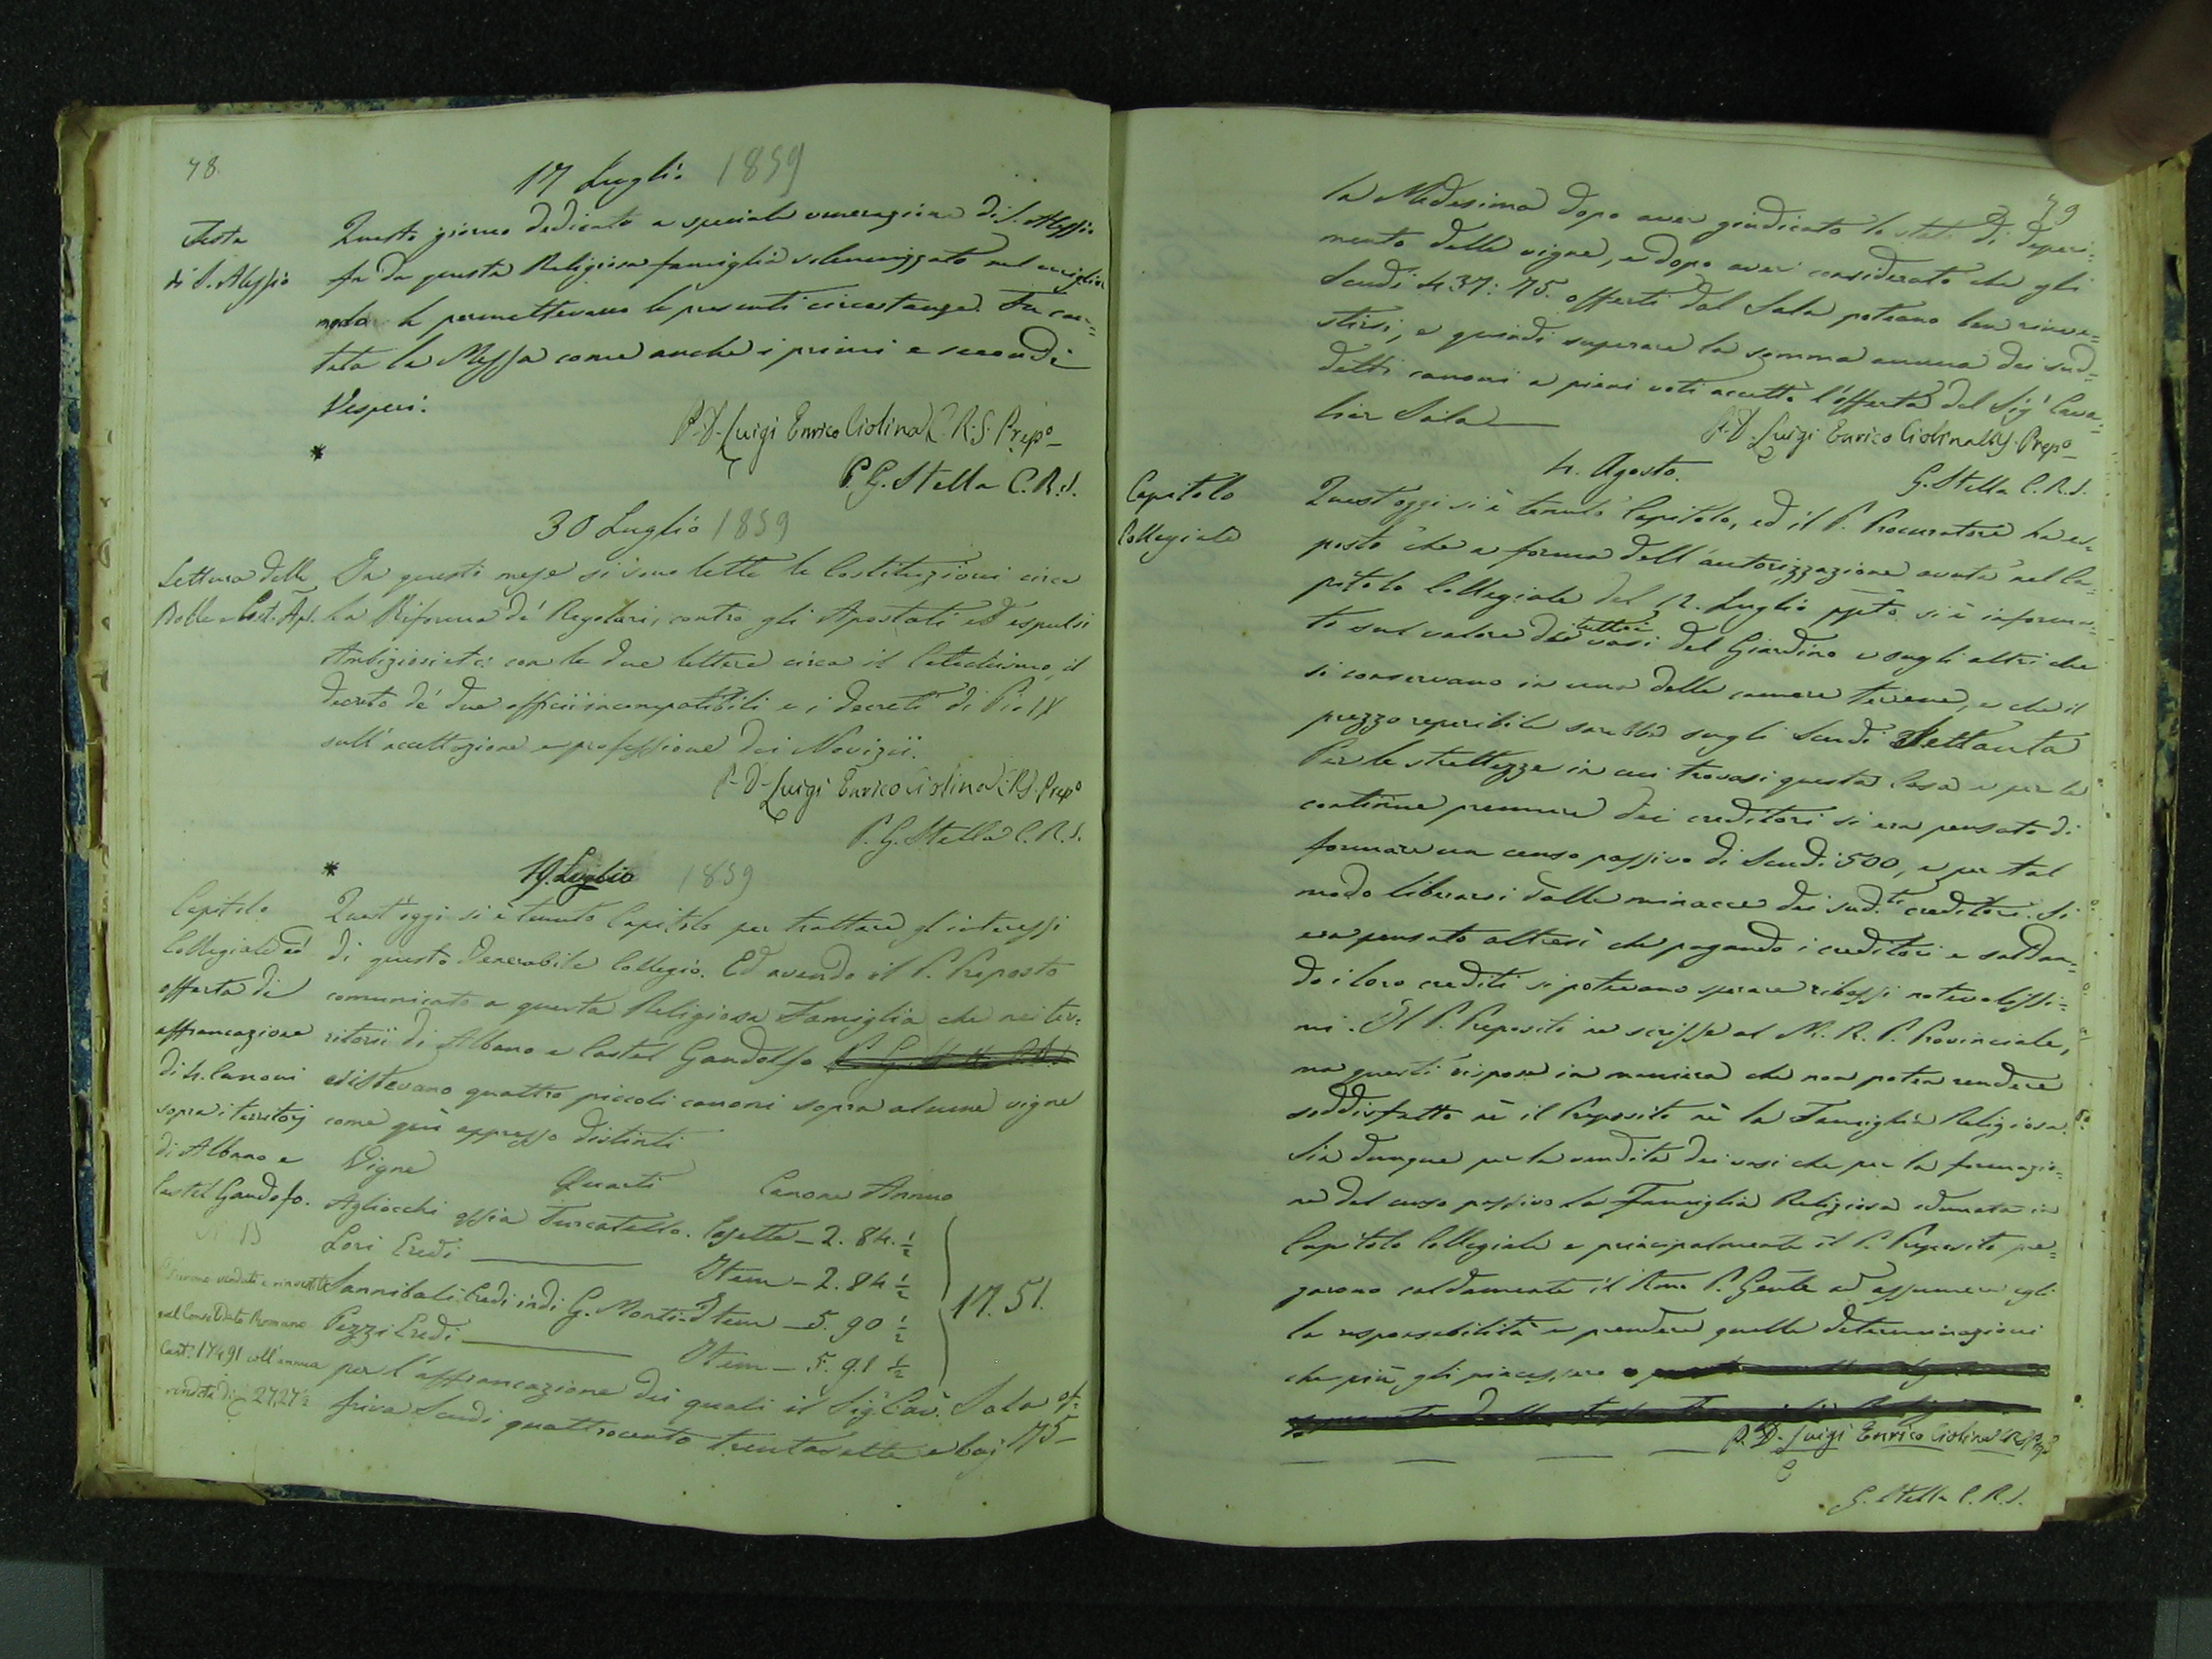 78.
17 Luglio 1859
Festa
di S. Alessio
Questo giorno dedicato a speciale venerazione di S. Alessio
fu da questa Religiosa famiglia solennizzato nel miglior
modo che permettevano le presenti circostanze. Fu can-
tata la Messa come anche i primi e secondi
Vesperi.
P. D. Luigi Enrico Ciolina C. R. S. Prepo
*
P. G. Stella C. R. S.
30 Luglio 1859
Lettura delle
Bolle e Cost. Ap.
In questo mese si sono lette le Costituzioni circa
la Riforma de' Regolari, contro gli Apostati ed espulsi
Ambiziosi etc: con le due lettere circa il Catechismo, il
Decreto de' due officii incompatibili e i decreti di Pio IX
sull'accettazione e professione dei Novizii.
P. D. Luigi Enrico Ciolina C.R.S. Prepo
P. G. Stella C. R. S.
*
19. Luglio 1859
Capitolo
Collegiale ed
offerta di
affrancazione
di 4. Canoni
sopra i territorj
di Albano e
Castel Gandolfo.
Quest'oggi si è tenuto Capitolo per trattare gl'interessi
di questo Venerabile Collegio. Ed avendo il P. Preposto
comunicato a questa Religiosa Famiglia che nei ter-
ritorii di Albano e Castel Gandolfo
esistevano quattro piccoli canoni sopra alcune vigne
come quì appresso distinti
Vigne Quarti Canone Annuo
Agliocchi ossia Turcatello. Casette - 2. 84. ½
Lori Eredi Item - 2. 84 ½
Sannibali Eredi indi G. Monti - Item - 5. 90 ½
Pezzi Eredi Item - 5. 91 ½
17. 51.
N B
furono venduti e rinvestiti
nel Consolidato Romano
Cart. 17491 coll'annua
rendita di 27,27½
per l'affrancazione dei quali il Sig. Cav. Sala of-
friva Scudi quattrocento trentasette e baj 75 -
79
la Medesima dopo aver giudicato lo stato di deperi-
mento delle vigne, e dopo aver considerato che gli
Scudi 437: 75. offerti dal Sala poteano ben rinve-
stirsi, e quindi superare la somma annua dei sud-
detti canoni a pieni voti accettò l'offerta del Sig. Cava-
lier Sala
P. D. Luigi Enrico Ciolina CRS. Prepo
G. Stella C. R. S.
4. Agosto.
Capitolo
Collegiale
Quest'oggi si è tenuto Capitolo, ed il P. Procuratore ha es-
posto che a forma dell'autorizzazione avuta nel Ca-
pitolo Collegiale del 12. Luglio ppto si è informa-
to sul valore di tutti i vasi del Giardino e sugli altri che
si conservano in una delle camere terrene, e che il
prezzo reperibile sarebbe sugli Scudi Settanta
Per le strettezze in cui trovasi questa Casa e per le
continue premure dei creditori si era pensato di
formare un censo passivo di Scudi 500, e per tal
modo liberarsi dalle minacce dei sudti creditori. Si
era pensato altresì che pagando i creditori e saldan-
do i loro crediti si potevano sperare ribassi notevolissi-
mi. Il P. Preposito ne scrisse al M. R. P. Provinciale,
ma questi rispose in maniera che non potea rendere
soddisfatto nè il Preposito nè la Famiglia Religiosa.
Sia dunque per la vendita dei vasi che per la formazio-
ne del censo passivo la Famiglia Religiosa adunata in
Capitolo Collegiale e principalmente il P. Preposito pre-
garono caldamente il Rmo P. Gente ad assumere egli
la responsabilità e prendere quelle determinazioni
che più gli piacessero
P. D. Luigi Enrico Ciolina CRS Prepo
G. Stella C. R. S.